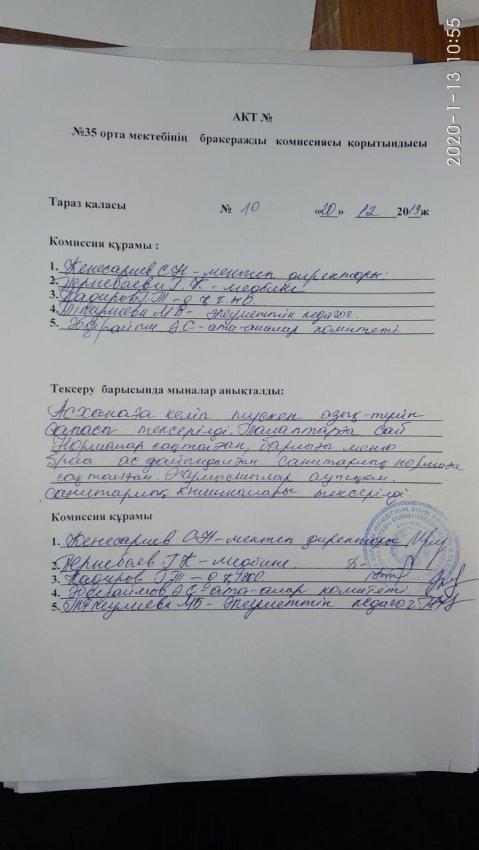 2020-1-13 10:55
АКТ №
№35 орта мектебінің бракеражды комиссиясы қорытындысы
Тараз қаласы № 10 «20» 12 2019ж
Комиссия құрамы :
1. Кенесариев С.Н - мектеп директоры.
2. Г. К. - медбике
3. Кадиров Г.Т -
4. М Б - Әлеуметтік педагог.
5. Ә.С - ата-аналар комитеті
Тексеру барысында мыналар анықталды:
Асханаға келіп түскен азық-түлік
сапасы тексерілді. Талаптарға сай
Нормалар сақталған барлығы меню
б/ша ас дайындалған. Санитарлық нормаға
сақталған.
Санитарлық книжкалары тексерілді.
Комиссия құрамы
1. Кенесариев С.Н - мектеп директоры
2. Г.К - медбике.
3. Кадиров Г.Т -
4. Ә.С - ата-аналар комитеті.
5. М.Б - Әлеуметтік педагог